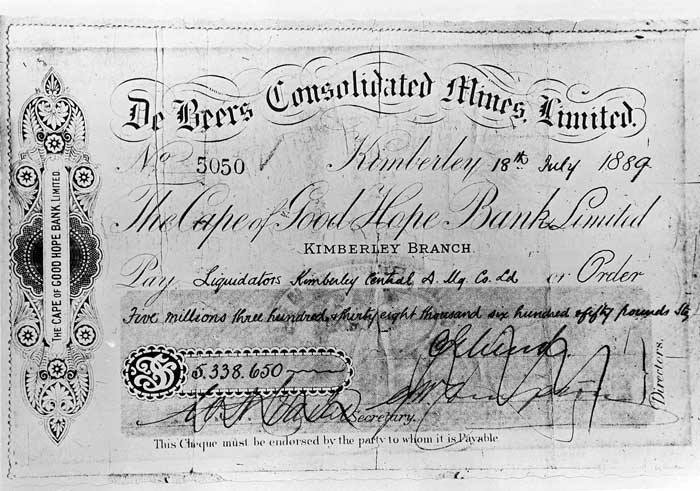 De Beers Consolidated Mines, Limited.
No 5050 Kimberley 18th July 1889
The Cape of Good Hope Bank Limited
KIMBERLEY BRANCH
Pay Liquidators Kimberley Central D. Mg. Co. Ld or Order
Five millions three hundred & thirty eight thousand six hundred & fifty pounds Stg
£ 5,338,650
Directors.
Secretary.
This Cheque must be endorsed by the party to whom it is Payable
THE CAPE OF GOOD HOPE BANK, LIMITED